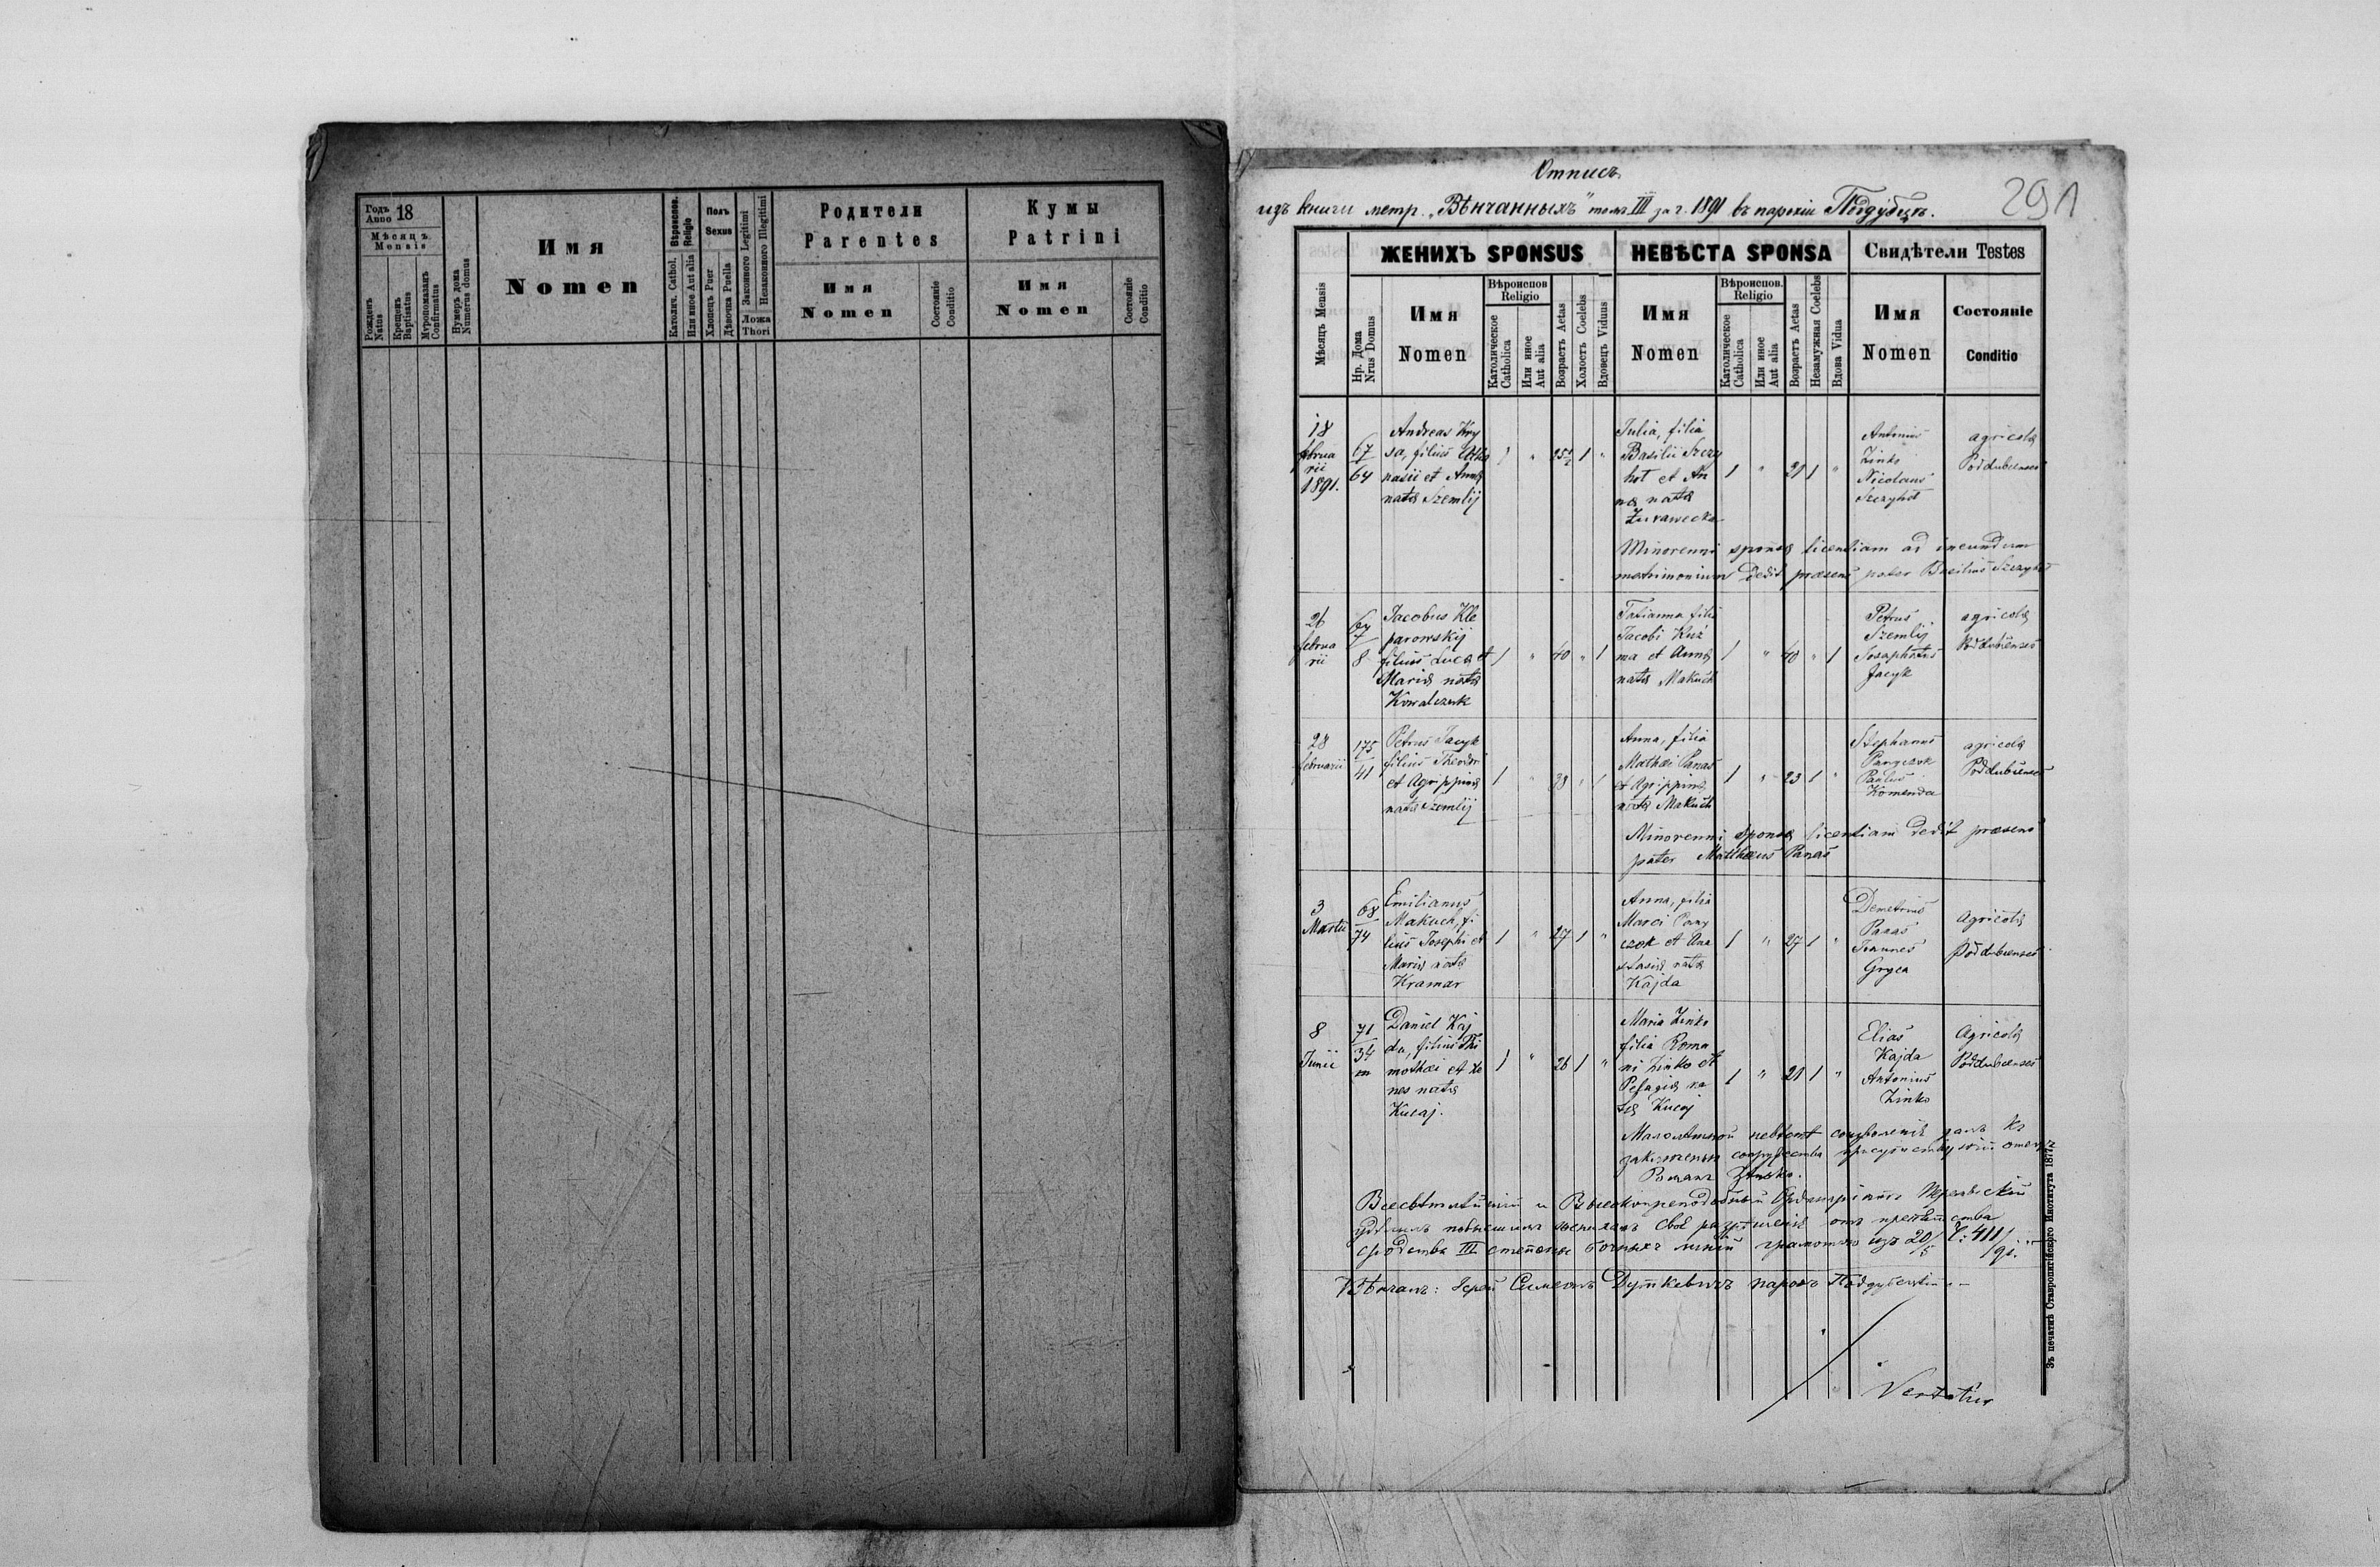 Годъ Anno 18
Мѣсяцъ. Mensis
Рожденъ Natus
Крещенъ Baptisatus
Мѵропомазанъ Confirmatus
Нумеръ дома Numerus domus
Имя
Nomen
Вѣроиспов. Religio
Католич. Cathol.
Или иное Aut alia
Полъ
Sexus
Хлопецъ Puer
Дѣвочка Puella
Законного Legitimi
Незаконного Illegitimi
Ложа
Thori
Родители
Parentes
Имя
Nomen
Состояніе Conditio
Кумы
Patrini
Имя
Nomen
Состояніе Conditio
Отписъ
изъ книги метр. „Вѣнчанныхъ" томъ III за г. 1891 въ парохіи Поддубцѣ.
291
Мѣсяцъ Mensis
ЖЕНИХЪ SPONSUS
Нр. Дома Nrus Domus
Имя
Nomen
Вѣроиспов
Religio
Католическое Catholica
Или иное Aut alia
Возрастъ Aetas
Холостъ Coelebs
Вдовецъ Viduus
НЕВѢСТА SPONSA
Имя
Nomen
Вѣроиспов.
Religio
Католическое Catholica
Или иное Aut alia
Возрастъ Aetas
Незамужная Coelebs
Вдова Vidua
Свидѣтели Testes
Имя
Nomen
Состояніе
Conditio
18
februa
rii
1891.
67
64
Andreas Kry
sa, filius Atha
nasii et Annæ
natæ Szemlij
1 " 25½ 1 "
Julia, filia
Basilii Szczy
hot et An
næ natæ
Żurawecka
1 " 21 1 "
Antonius
Zinko
Nicolaus
Szczyhot
agricolæ
Poddubienses
Minorenni sponsæ licentiam ad ineundum
matrimonium dedit præsens pater Basilius Szczyhot
26
februa
rii
67
8
Jacobus Kle
parowskij
filius Lucæ et
Mariæ natæ
Kowalczuk
1 " 40 " 1
Tatianna filia
Jacobi Kuź
ma et Annæ
natæ Makuch
1 " 40 " 1
Petrus
Szemlij
Josaphatus
Jacyk
agricolæ
Poddubienses
28
februarii
175
41
Petrus Jacyk
filius Theodori
et Agrippinæ
natæ Szemlij
1 " 38 " 1
Anna, filia
Mathæi Panas
et Agrippinæ
natæ Makuch
1 " 23 1 "
Stephanus
Panyczok
Paulus
Komenda
agricolæ
Poddubienses
Minorenni sponsæ licentiam dedit præsens
pater Matthæus Panas
3
Martii
68
74
Emilianus
Makuch, fi
lius Josephi et
Mariæ natæ
Kramar
1 " 27 1 "
Anna, filia
Marci Pany
czok et Ana
stasiæ natæ
Kajda
1 " 27 1 "
Demetrius
Panas
Joannes
Gryca
Agricolæ
Poddubienses
8
Junii
71
34
Daniel Kaj
da, filius Thi
mothæi et Xe
nes natæ
Kucaj.
1 " 26 1 "
Maria Zinko
filia Roma
ni Zinko et
Pelagiæ na
tæ Kucaj
1 " 21 1 "
Elias
Kajda
Antonius
Zinko
Agricolæ
Poddubienses
Малолѣтной невѣстѣ соизволеніе далъ къ
заключенію супружества присутствующій отецъ
Романъ Зѣнько.
Всесвѣтлѣйшій и Высокопреподобный Ординаріатъ
удѣлилъ повысшимъ супругамъ своє разрѣшеніе отъ препятства
сродства III степени бочныхъ линій грамотою изъ 20/5 Ч: 411/91.
Вѣнчалъ: Іерей Симеонъ Дуткевичъ парохъ Поддубецкій.
Vertatur
Зъ печатнѣ Ставропигійского Института 1877.